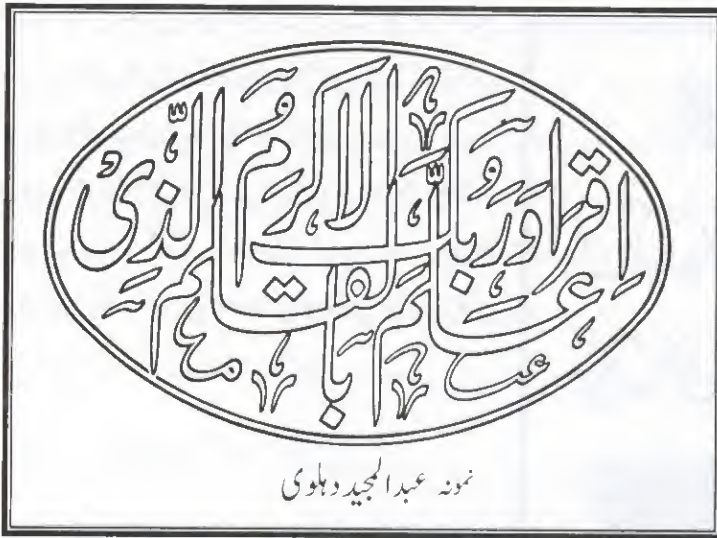 اِقْرَا وَرَبُّكَ الاَكْرَمُ الَّذِیْ
عَلَّمَ بِالقَلَم
نمونہ عبدالمجید دہلوی